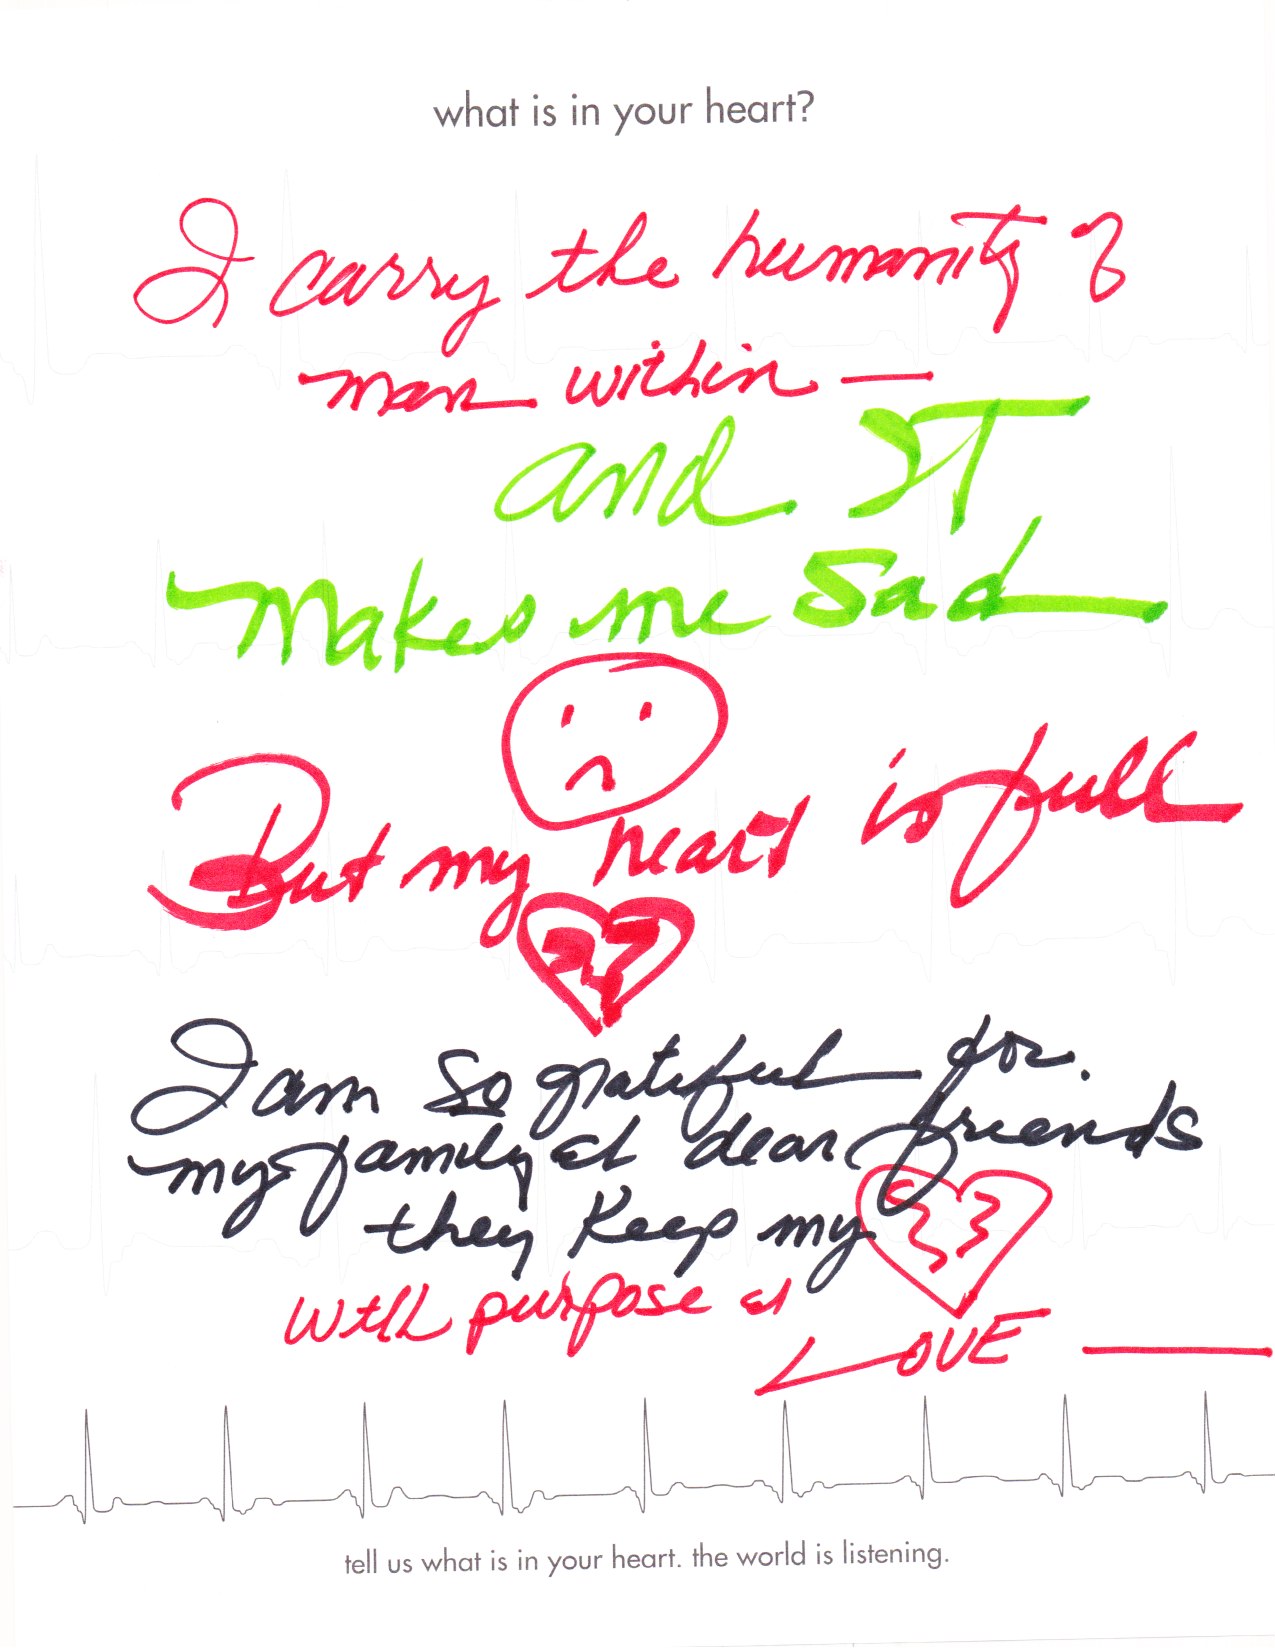 what is in your heart?
I carry the humanity of
man within —
and IT
makes me Sad
But my heart is full
I am So grateful for
my family & dear friends
they keep my
with purpose &
LOVE
tell us what is in your heart. the world is listening.